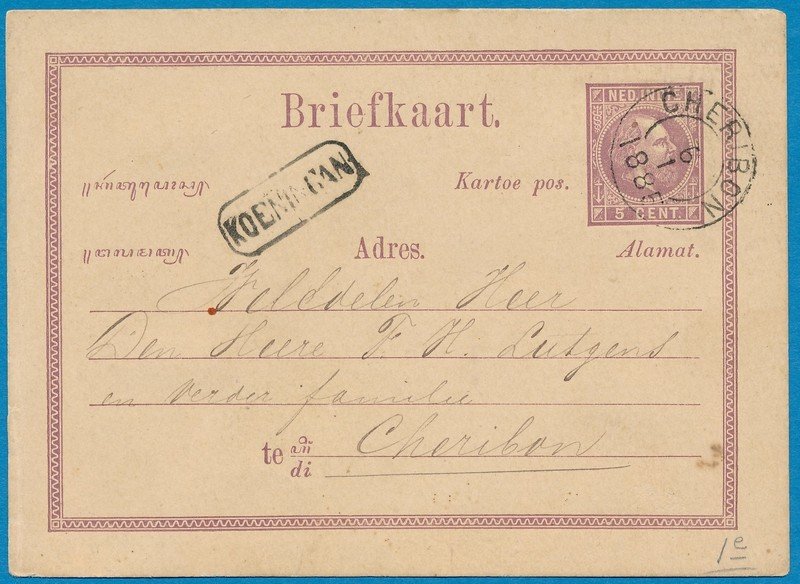 Briefkaart.
NED. INDIE
CHERIBON
6
1
1885
KOENINGAN
Kartoe pos.
5 CENT.
Adres.
Alamat.
Weledelen Heer
Den Heere F. H. Lutgens
en verder familie
te
di
Cheribon
1e